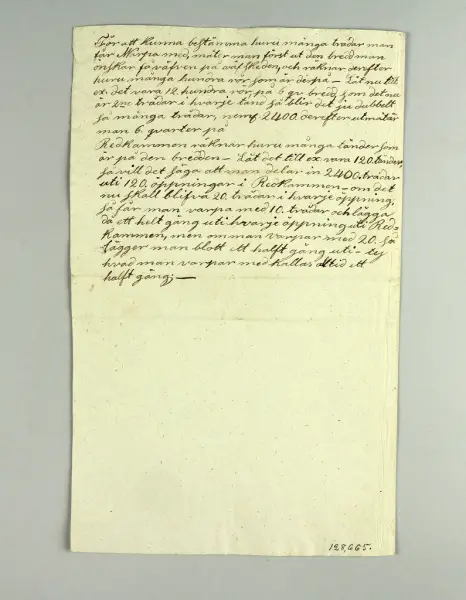 För att kunna bestämma huru många trådar man
får Warpa med, mäter man först ut den bredd man
önskar få väfven på väfskeden, och räknar derefter
huru många hundra rör som är derpå – Låt nu till
ex. det vara 12. hundra rör, på 6 qv. bredd, som det nu
är 2ne trådar i hvarje tand så blir det ju dubbelt
så många trådar, neml 2400. derefter utmätar
man 6. quarter på
Redkammen räknar huru många tänder som
är på den bredden – Låt det till ex. vara 120. tänder,
så vill det säga att man delar in 2400. trådar
uti 120. öppningar i Redkammen – om det
nu skall blifva 20. trådar i hvarje öppning,
så får man varpa med 10. trådar och lägga
då ett helt gång uti hvarje öppning uti Red-
kammen, men om man varpar med 20. så
lägger man blott ett halft gång uti – ty
hvad man varpar med kallas alltid ett
halft gång; –
128,665.